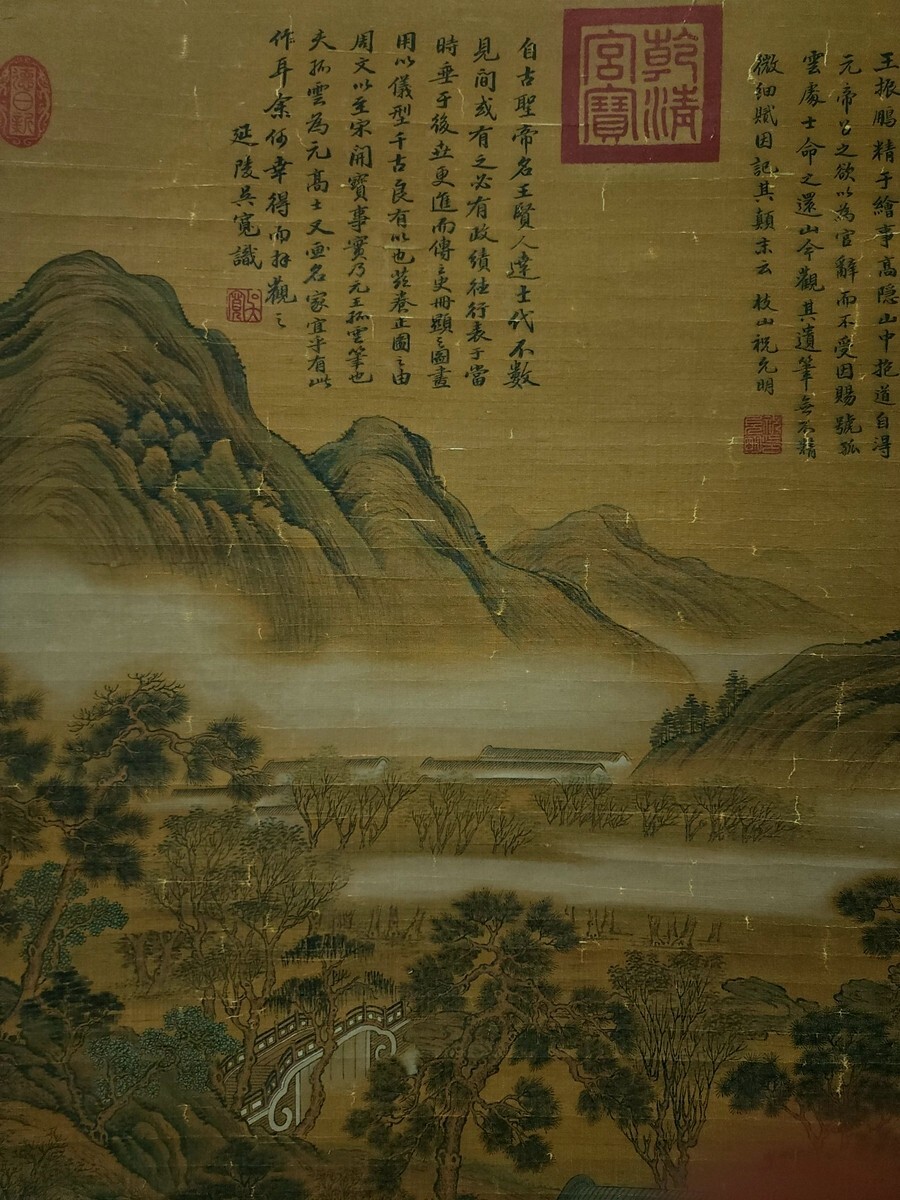 王振鹏精于繪事高隐山中抱道自得
元帝召之欲以為官辭而不受因賜號孤
雲處士命之還山今觀其遺筆無不精
微細賦因記其顛末云 枝山祝允明
乾清宮寶
自古聖帝名王賢人達士代不數
見間或有之必有政績往行表于當
時垂于後世更進而傳之史冊顯之圖畫
用以儀型千古良有以也茲養正圖之由
周文以至宋開寶事實乃元王孤雲筆也
夫孤雲為元高士又画名家宜乎有此
作耳余何幸得而拜觀之
延陵吳寬識
吳寬
德日新